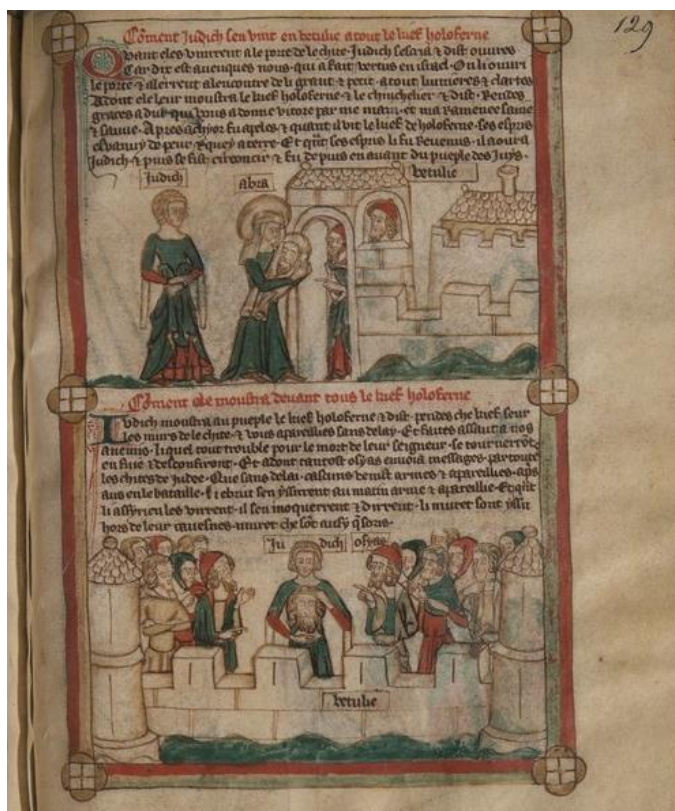 129
Cõment Judich sen vint en betulie atout le kief holoferne
Quant eles vinrent a le porte de le chite. Judich sescria & dist ouvres
Car dix est auenques nous. qui a fait vertus en israel. On li ouvri
le porte & alerrent alencontre de li grant & petit. atout lumieres & clartes
Adont ele leur moustra le kief holoferne & le &  dist. Rendes
graces a dix qui vous a donne vitore par me main. et ma ramenee saine
& sauve. Apres achyor fu apeles & quant il vit le kief de holoferne. ses espris
esvanuy de peur & quey a terre. Et qũt ses espris li fu revenus. il aoura
Judich. & puis se fist circoncir & fu de puis en auant du pueple des Juys.
Judich
abra
betulie
Cõment ele moustra deuant tous le kief holoferne
Iudich moustra au pueple le kief holoferne & dist. pendes che kief seur
les murs de le chite. & vous apareillies sans delay. Et faites assaut a nos
anemis. liquel tout trouble pour le mort de leur seigneur. se tourneront
en fuie & desconfiront. Et adont tantost osyas envoia messages. par toute
les chites de Judee. Que sans delai. cascuns venist armes & apareillies. aps
aus en le bataille. sen yssirent au matin arme & apareillie. Et qũt
li assyrien les virent. il sen moquerrent & dirrent. li muret sont yssu
hors de leur cavesnes. muret che sõt ausy
Judich
osyas
betulie